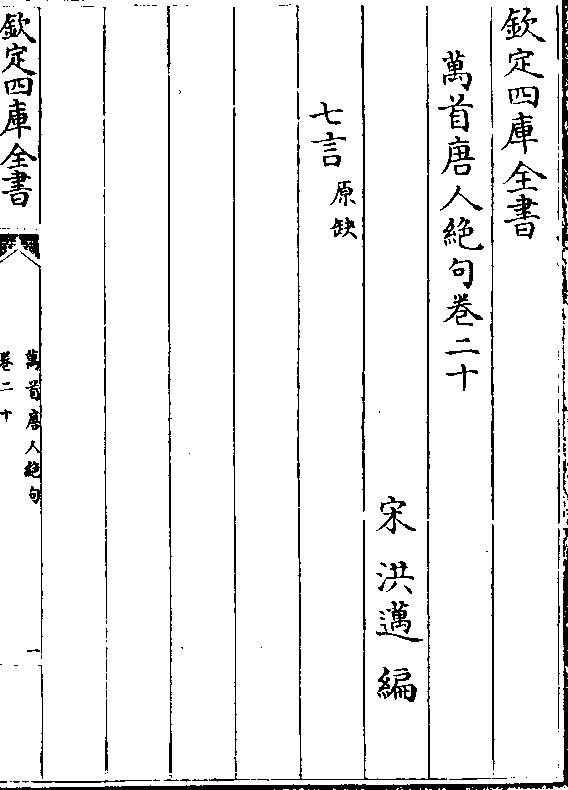 欽定四庫全書
萬首唐人絶句卷二十
宋洪邁編
七言原缺
欽定四庫全書
萬首唐人絶句
卷二十
一